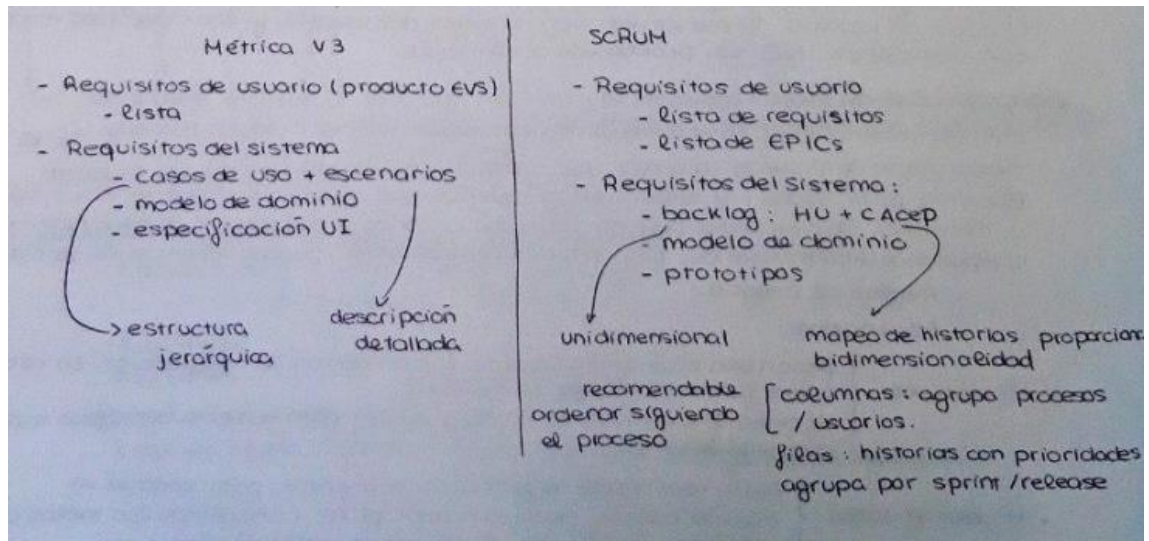 Métrica V3
- Requisitos de usuario (producto EVS)
- lista
- Requisitos del sistema
- casos de uso + escenarios
- modelo de dominio
- especificación UI
estructura
jerárquica
descripción
detallada
SCRUM
- Requisitos de usuario
- lista de requisitos
- lista de EPICs
- Requisitos del sistema:
- backlog: HU + CAcep
- modelo de dominio
- prototipos
unidimensional
recomendable
ordenar siguiendo
el proceso
mapeo de historias proporcion
bidimensionalidad
columnas: agrupa procesos
/ usuarios.
filas: historias con prioridades
agrupa por sprint/release